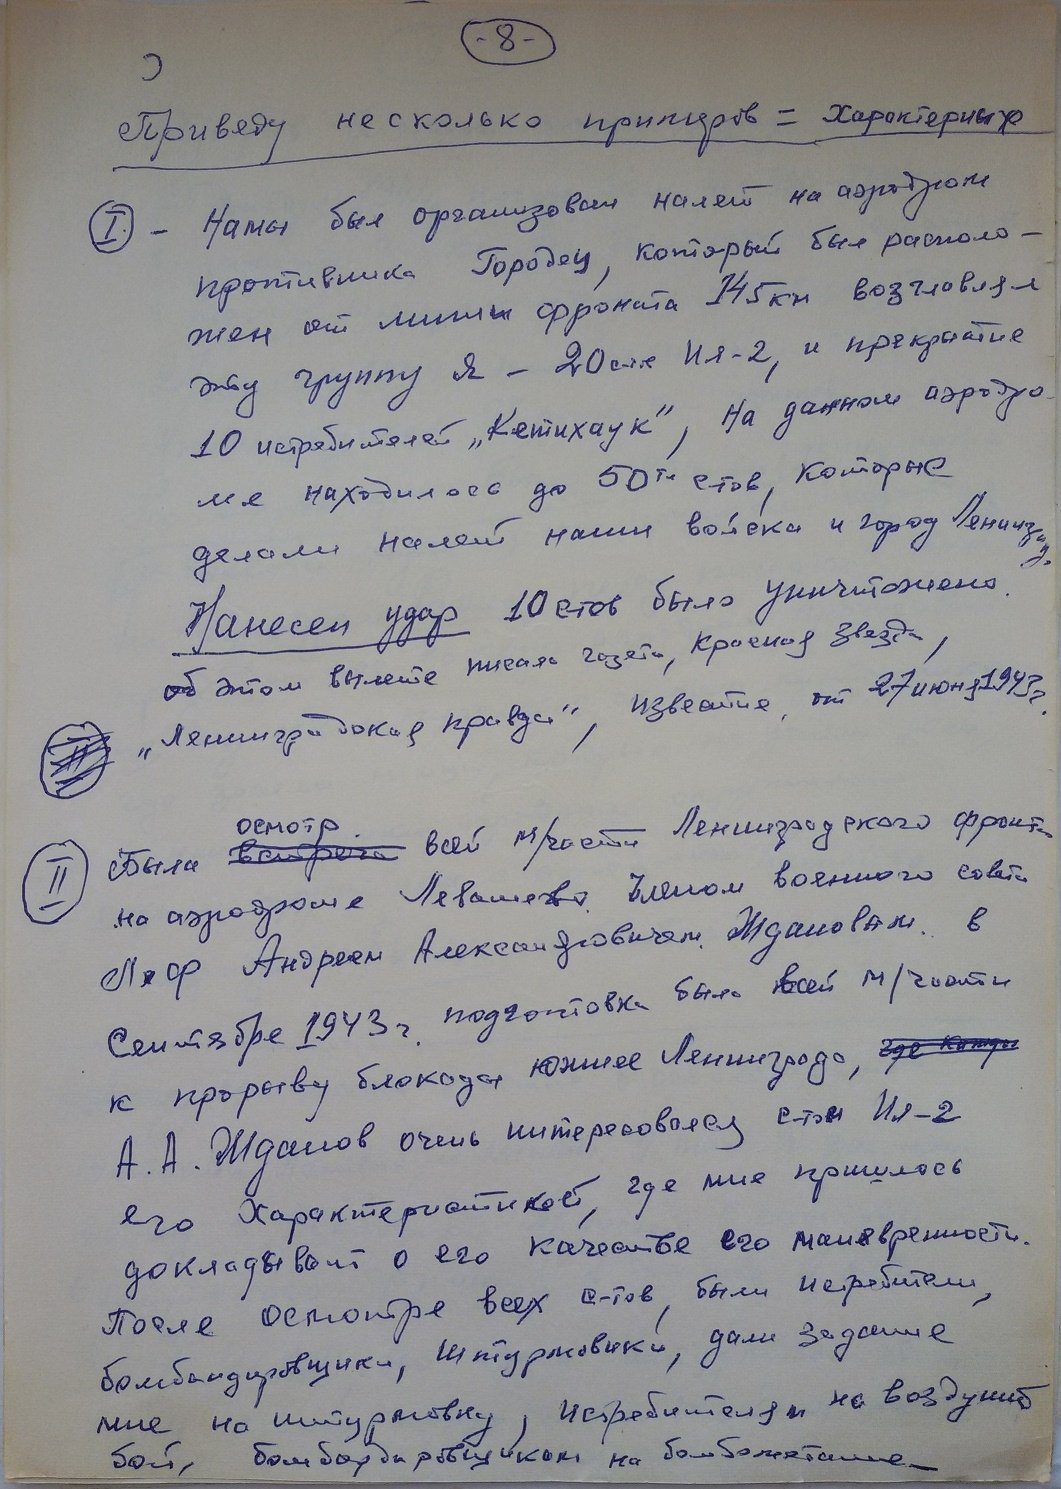 -8-
Приведу несколько примеров = характерных
I. - Нами был организован налет на аэродром
противника Городец, который был располо-
жен от линии фронта 145км возглавлял
эту группу я - 20с-ов Ил-2, и прикрытие
10 истребителей „Кетихаук", На данном аэродро-
ме находилось до 50ти с-тов, которые
делали налет наши войска и город Ленинград.
Нанесен удар 10 с-тов было уничтожено.
об этом вылете писала газета, Красная звезда,
„Ленинградская правда", известие, от 27 июня 1943г.
II
осмотр
II Была встреча всей м/части Ленинградского фронта
на аэродроме Левашево. Членом военного совета
Андреем Александровичем Ждановым. в
Сентябре 1943г. подготовка была всей м/части
к прорыву блокады южнее Ленинграда, где
А.А. Жданов очень интересовался с-том Ил-2
его характеристикой, где мне пришлось
докладыват о его качестве его маневренности.
После осмотре всех с-тов, были истребители,
бомбандировщики, штурмовики, дали задание
мне на штурмовку, истребителям на воздушный
бой, бомбардировщикам на бомбометание